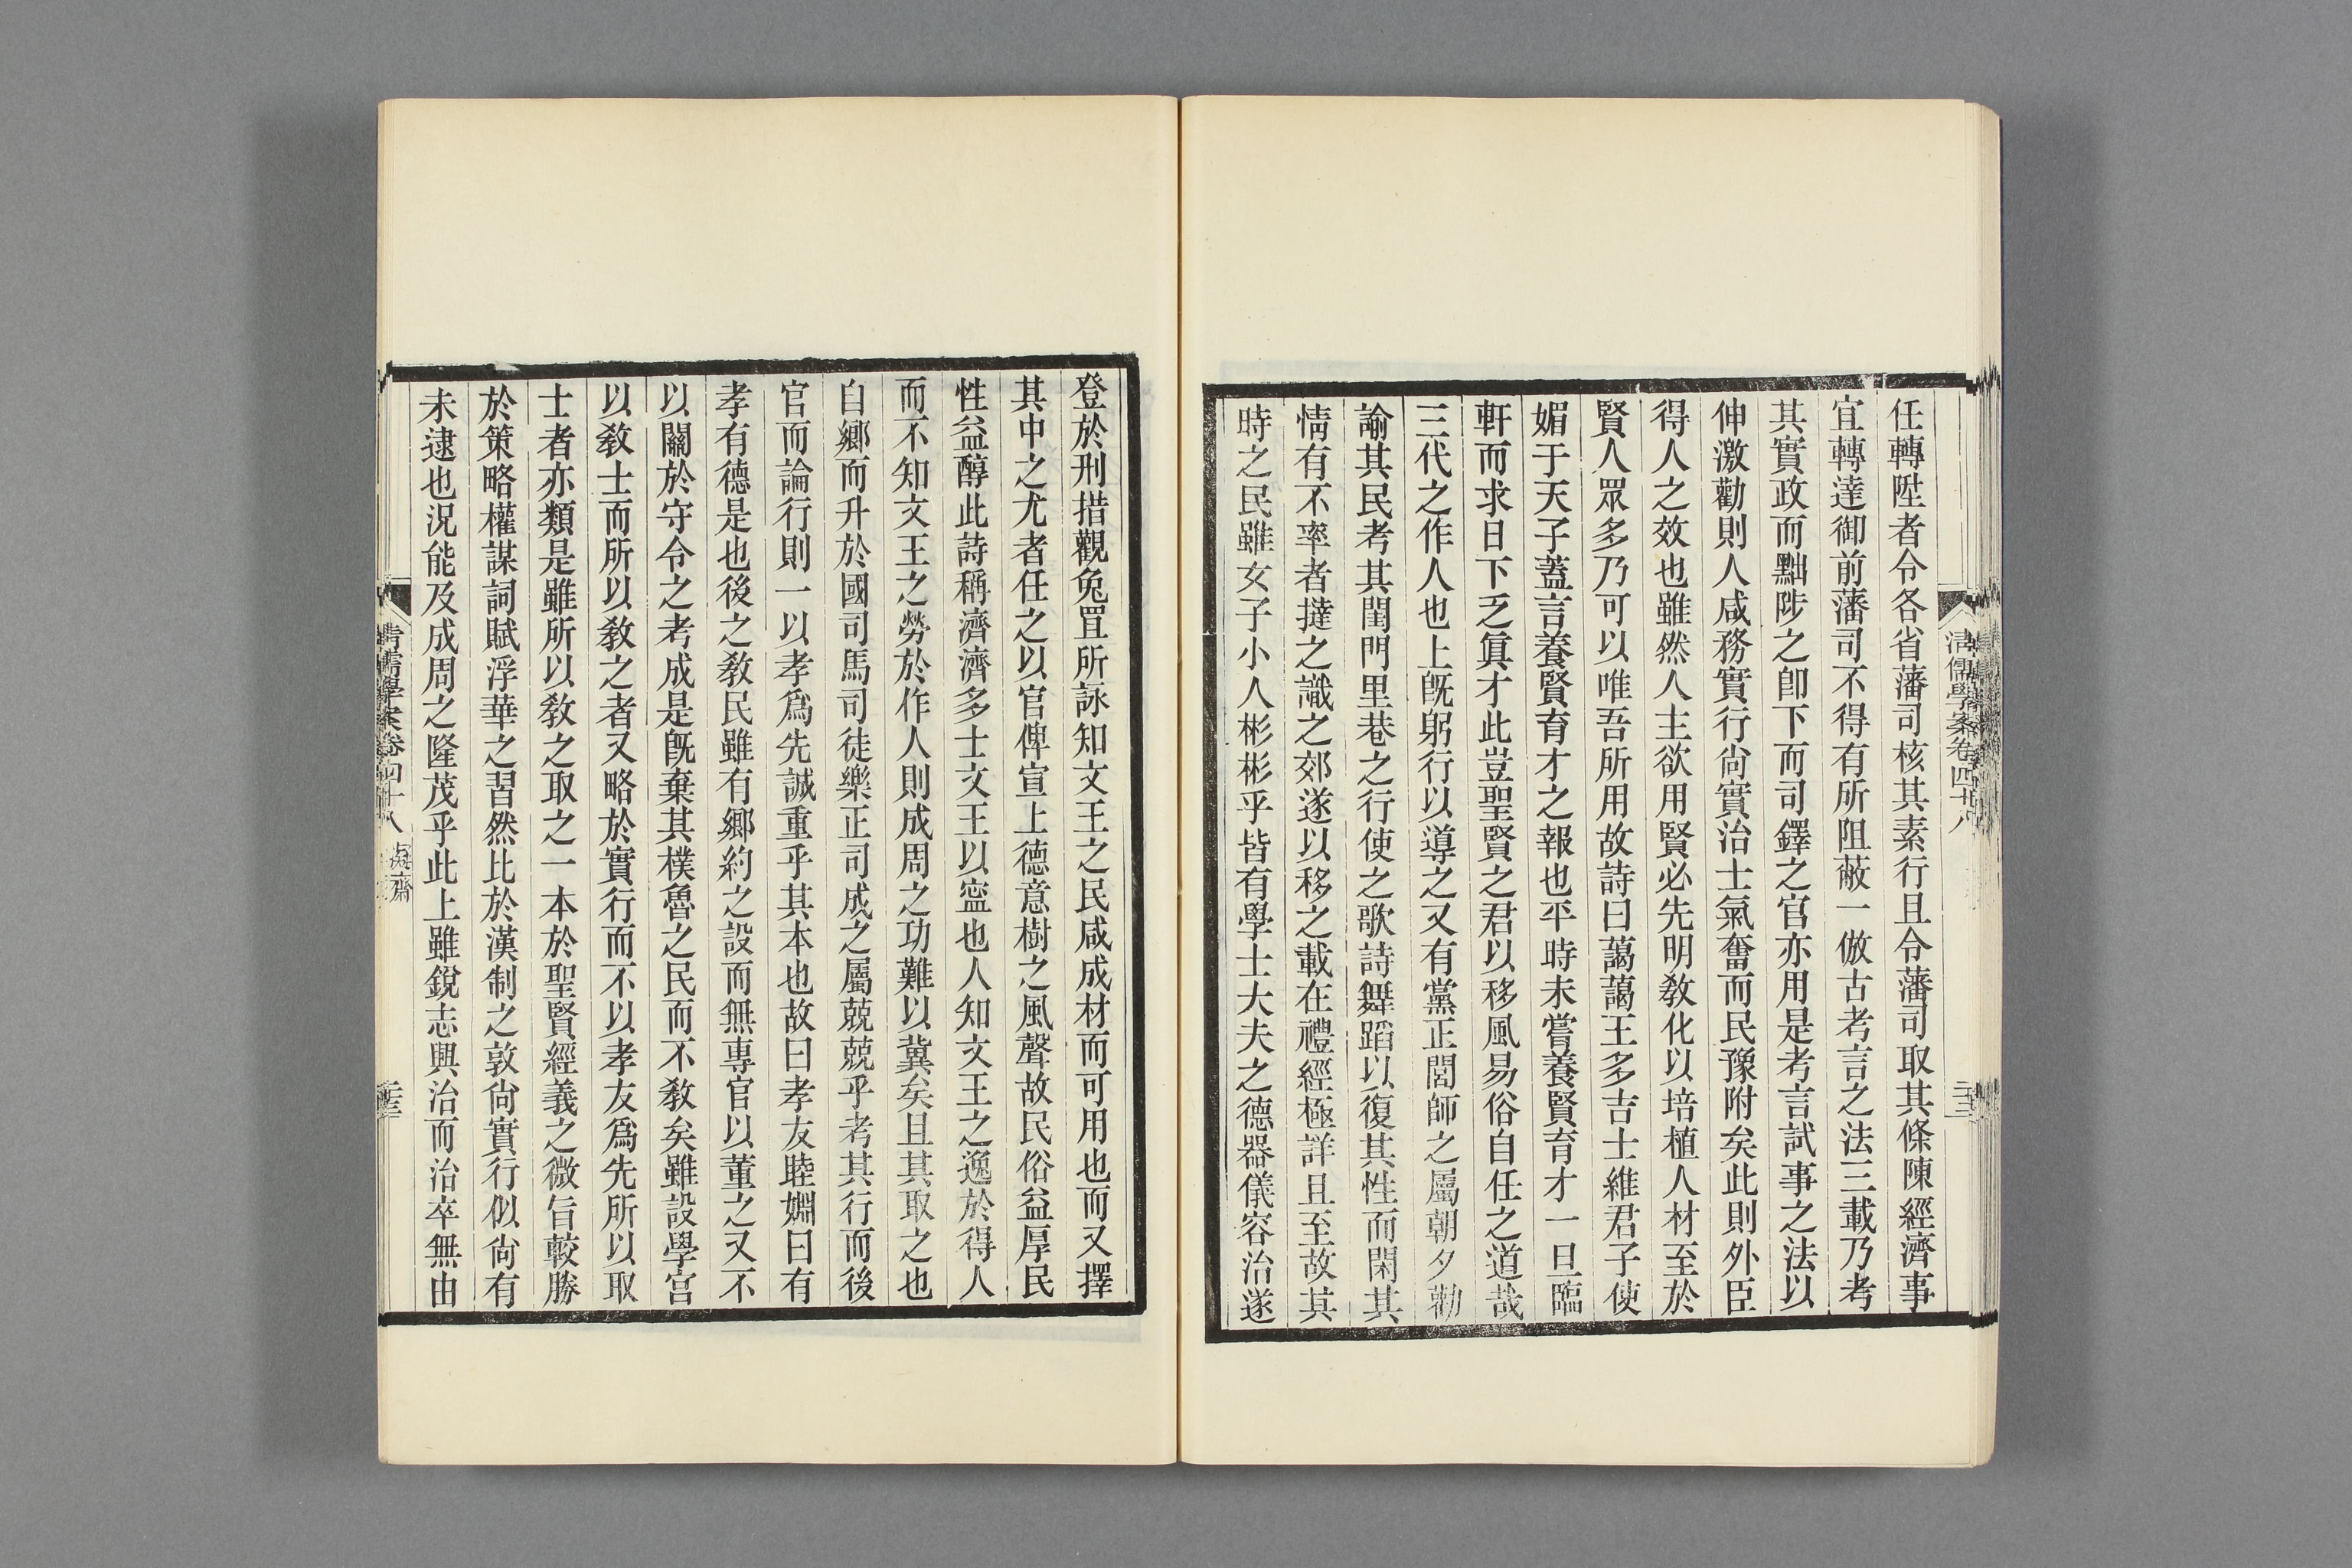 任轉陞者令各省藩司核其素行且令藩司取其條陳經濟事
宜轉達御前藩司不得有所阻蔽一倣古考言之法三載乃考
其實政而黜陟之卽下而司鐸之官亦用是考言試事之法以
伸激勸則人咸務實行尙實治士氣奮而民豫附矣此則外臣
得人之效也雖然人主欲用賢必先明敎化以培植人材至於
賢人眾多乃可以唯吾所用故詩曰藹藹王多吉士維君子使
媚于天子蓋言養賢育才之報也平時未嘗養賢育才一旦臨
軒而求曰下乏眞才此豈聖賢之君以移風易俗自任之道哉
三代之作人也上旣躬行以導之又有黨正閭師之屬朝夕勸
諭其民考其閨門里巷之行使之歌詩舞蹈以復其性而閑其
情有不率者撻之識之郊遂以移之載在禮經極詳且至故其
時之民雖女子小人彬彬乎皆有學士大夫之德器儀容治遂
清儒學案卷四十八
登於刑措觀兔罝所詠知文王之民咸成材而可用也而又擇
其中之尤者任之以官俾宣上德意樹之風聲故民俗益厚民
性益醇此詩稱濟濟多士文王以寍也人知文王之逸於得人
而不知文王之勞於作人則成周之功難以冀矣且其取之也
自鄉而升於國司馬司徒樂正司成之屬兢兢乎考其行而後
官而論行則一以孝爲先誠重乎其本也故曰孝友睦婣曰有
孝有德是也後之敎民雖有鄉約之設而無專官以董之又不
以關於守令之考成是旣棄其樸魯之民而不敎矣雖設學宮
以敎士而所以敎之者又略於實行而不以孝友爲先所以取
士者亦類是雖所以敎之取之一本於聖賢經義之微旨較勝
於策略權謀詞賦浮華之習然比於漢制之敦尙實行似尙有
未逮也況能及成周之隆茂乎此上雖銳志興治而治卒無由
清儒學案卷四十八